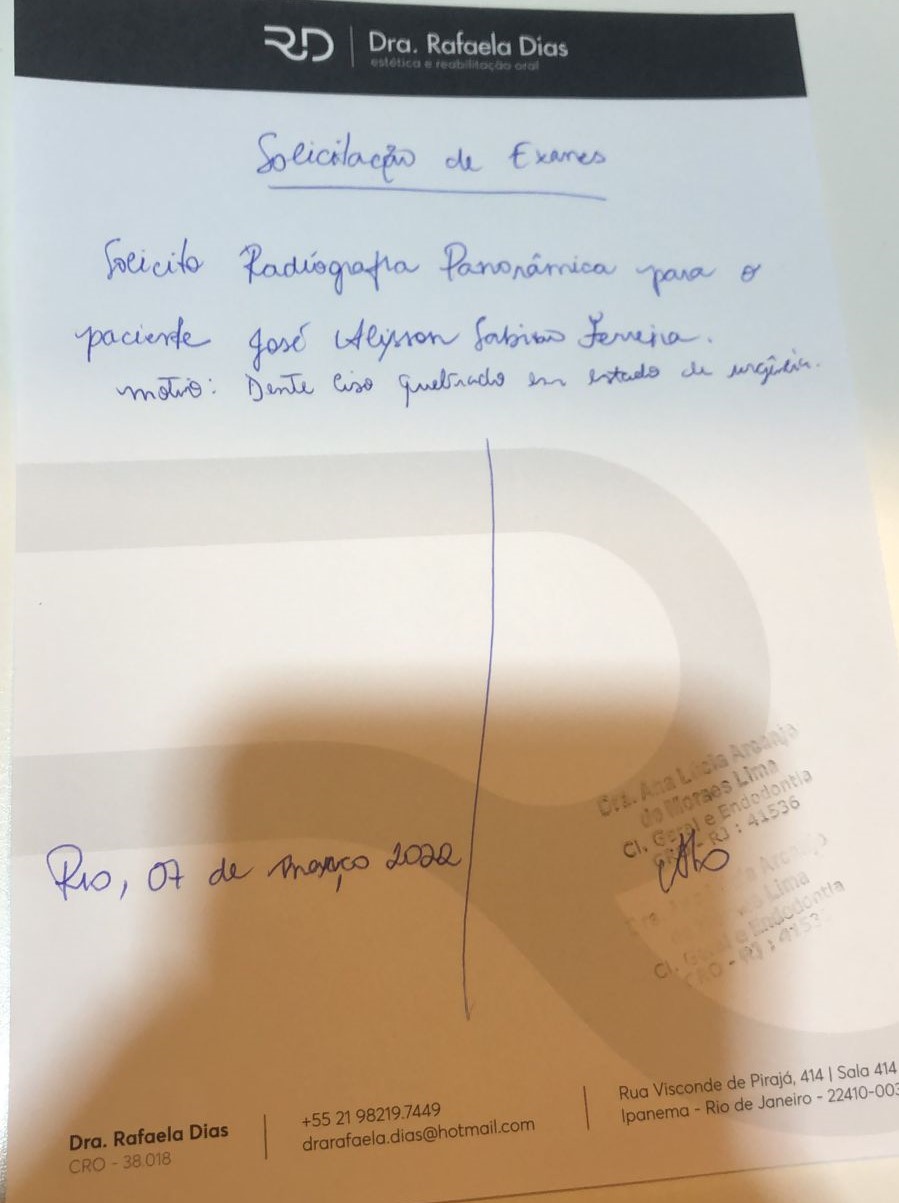 RD
Dra. Rafaela Dias
estética e reabilitação oral
Solicitação de Exames
Solicito Radiografia Panorâmica para o
paciente José Alysson Sabino Ferreira.
motivo: Dente Ciso quebrado em estado de urgência.
Dra. Ana Lúcia Arcanjo
de Moraes Lima
Cl. Geral e Endodontia
CRO - RJ : 41536
Rio, 07 de março 2022
Arcanjo
Lima
Cl. Geral e Endodontia
CRO - RJ : 4153
Dra. Rafaela Dias
CRO - 38.018
+55 21 98219.7449
drarafaela.dias@hotmail.com
Rua Visconde de Pirajá, 414 | Sala 414
Ipanema - Rio de Janeiro - 22410-003